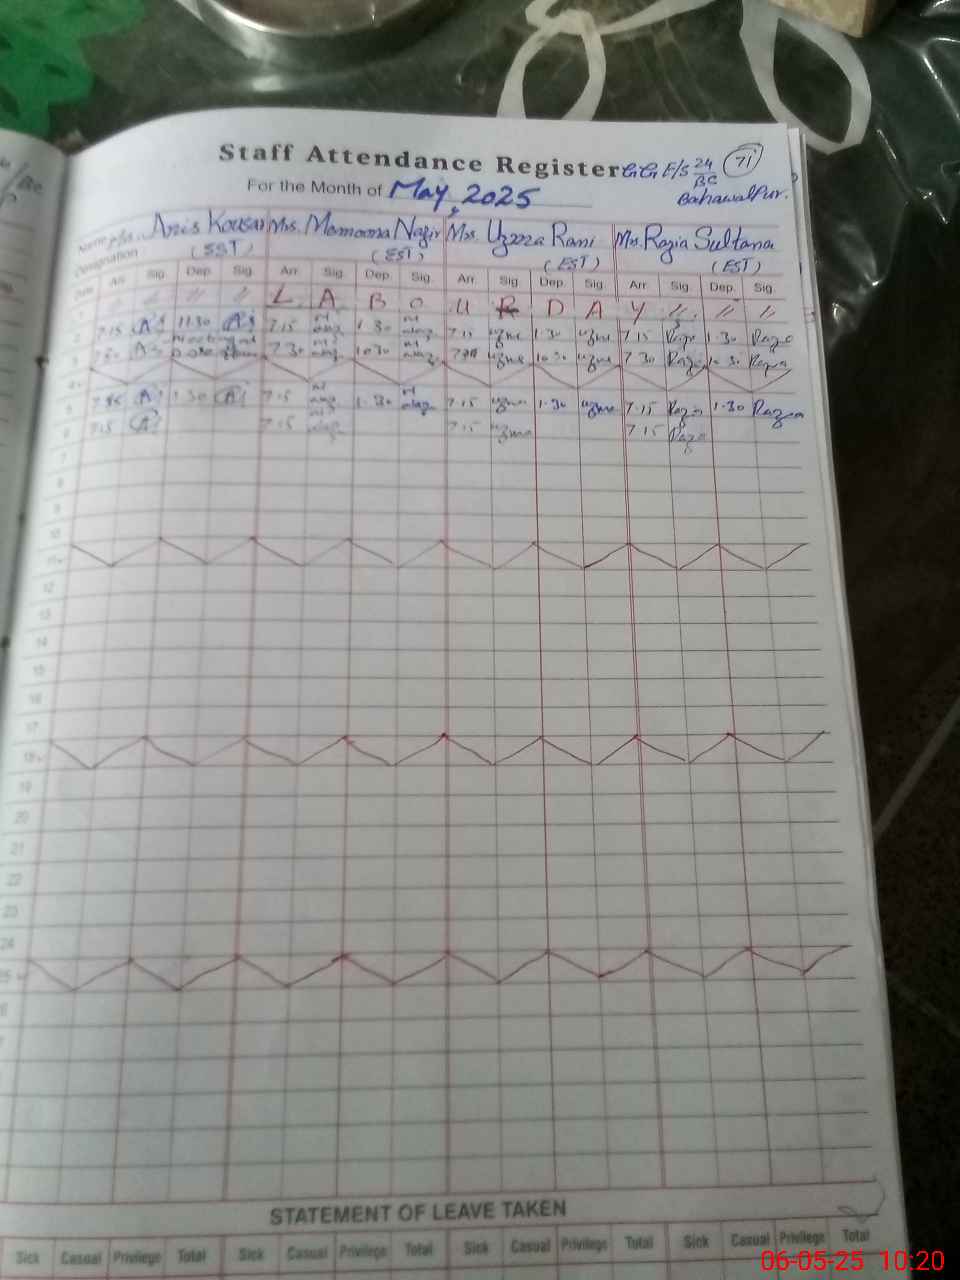 Staff Attendance Register GG E/S 24/BC 71
For the Month of May, 2025 Bahawalpur.
Name Mrs. Anis Kousar Mrs. Memoona Nazir Mrs. Uzma Rani Mrs. Razia Sultana
Designation (SST) (EST) (EST) (EST)
Date Arr. Sig. Dep. Sig. Arr. Sig. Dep. Sig. Arr. Sig. Dep. Sig. Arr. Sig. Dep. Sig.
1 " " " " L A B O U R D A Y " " "
2 7.15 11.30 7.15 1.30 7.15 uzma 1.30 uzma 7.15 Razia 1.30 Razia
3 7.30 7.30 10.30 uzma 10.30 uzma 7.30 Razia 10.30 Razia
4
5 1.30 7.15 1.30 7.15 uzma 1.30 uzma 7.15 Razia 1.30 Razia
6 7.15 7.15 7.15 uzma 7.15 Razia
7
8
9
10
11
12
13
14
15
16
17
18
19
20
21
22
23
24
25
STATEMENT OF LEAVE TAKEN
Sick Casual Privilege Total Sick Casual Privilege Total Sick Casual Privilege Total Sick Casual Privilege Total
06-05-25 10:20